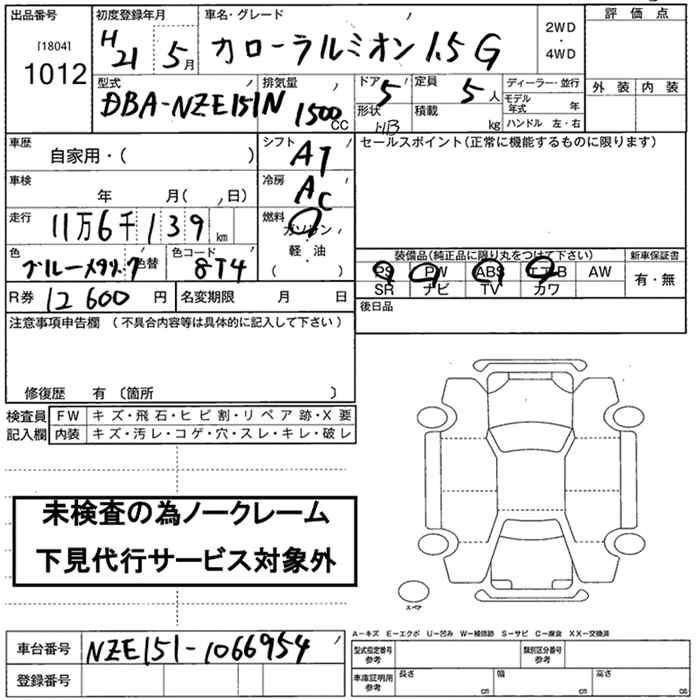 出品番号 初度登録年月 車名・グレード 評価点
[1804] 1012 H21 5月 カローラルミオン 1.5G 2WD・4WD
外装 内装
型式 排気量 ドア 定員 ディーラー・並行
DBA-NZE151N 1500cc 5 5人 モデル年式 年
形状 HB 積載 kg ハンドル 左・右
車歴 自家用・( ) シフト AT セールスポイント(正常に機能するものに限ります)
車検 年 月( 、日) 冷房 AC
走行 11万6千139km 燃料 ガソリン・軽油・( )
色 色替 色コード 8T4
装備品(純正品に限り丸をつけて下さい) 新車保証書
PS PW ABS エアB AW 有・無
SR ナビ TV カワ
R券 12600円 名変期限 月 日 後日品
注意事項申告欄(不具合内容等は具体的に記入して下さい)
修復歴 有〔箇所 〕
検査員記入欄 FW キズ・飛石・ヒビ割・リペア跡・X要
内装 キズ・汚レ・コゲ・穴・スレ・キレ・破レ
未検査の為ノークレーム
下見代行サービス対象外
スペア
A-キズ E-エクボ U-凹み W-補修跡 S-サビ C-腐食 XX-交換済
車台番号 NZE151-1066954 型式指定番号参考 類別区分番号参考
登録番号 車庫証明用参考 長さ cm 幅 cm 高さ cm